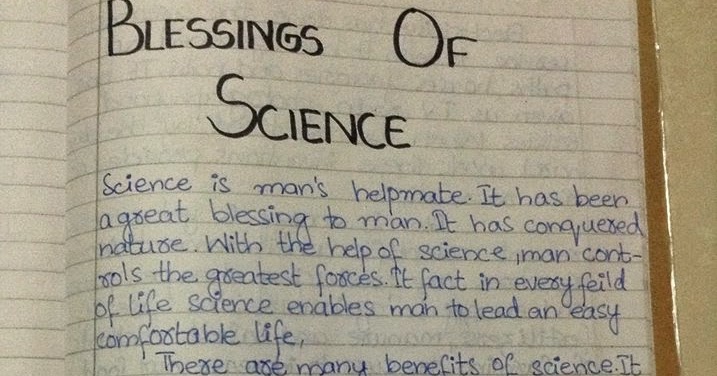 BLESSINGS OF
SCIENCE
Science is man's helpmate. It has been
a great blessing to man. It has conquered
nature. With the help of science, man cont-
rols the greatest forces. It fact in every feild
of life science enables man to lead an easy
comfortable life,
There are many benefits of science. It